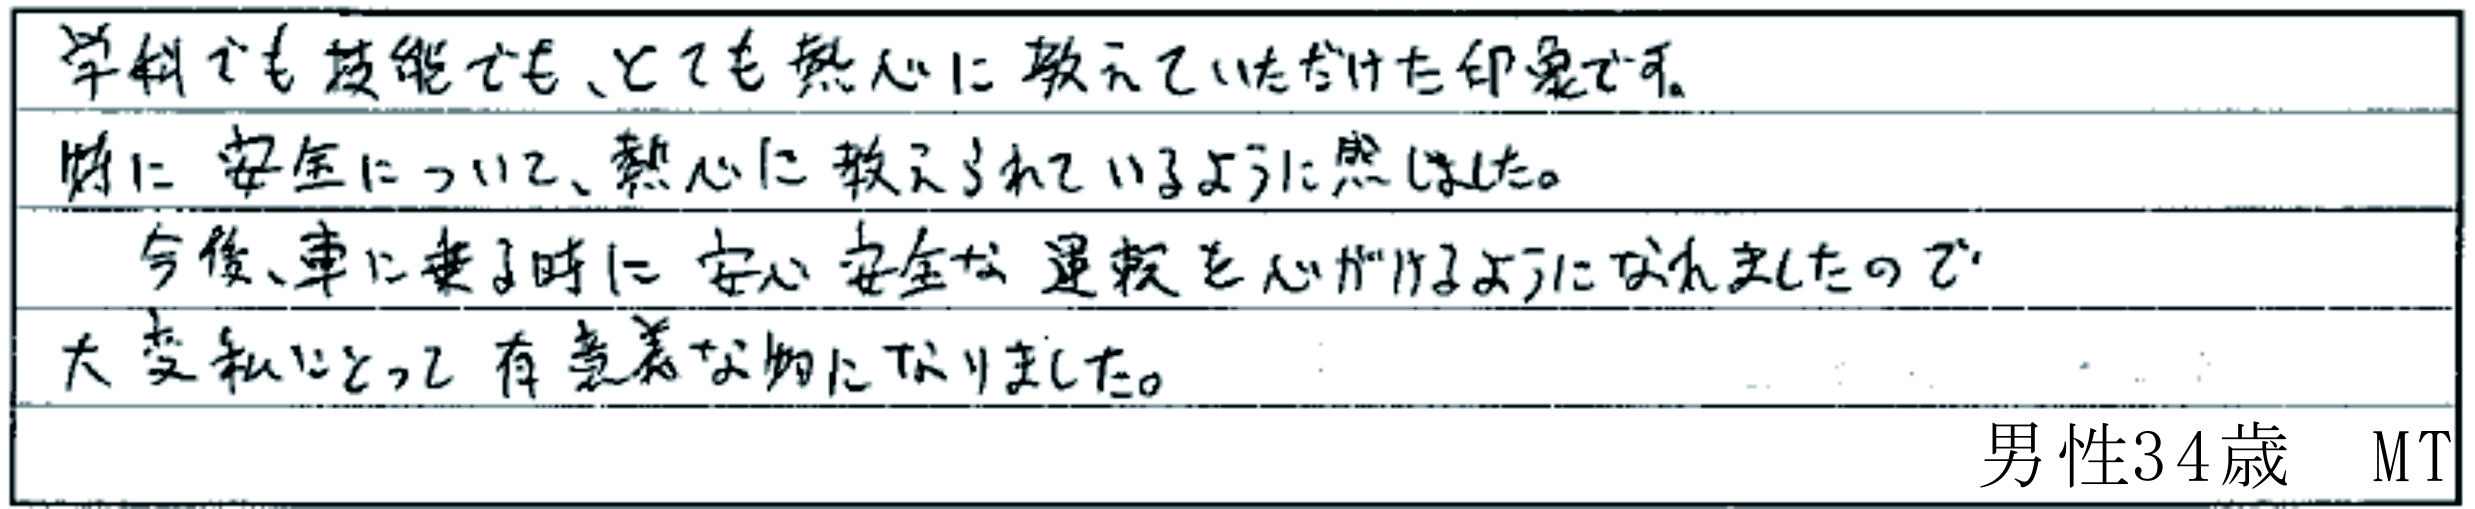 学科でも技能でも、とても熱心に教えていただけた印象です。
特に安全について、熱心に教えられているように感じました。
今後、車に乗る時に安心安全な運転を心がけるようになれましたので
大変私にとって有意義な物になりました。
男性34歳　MT